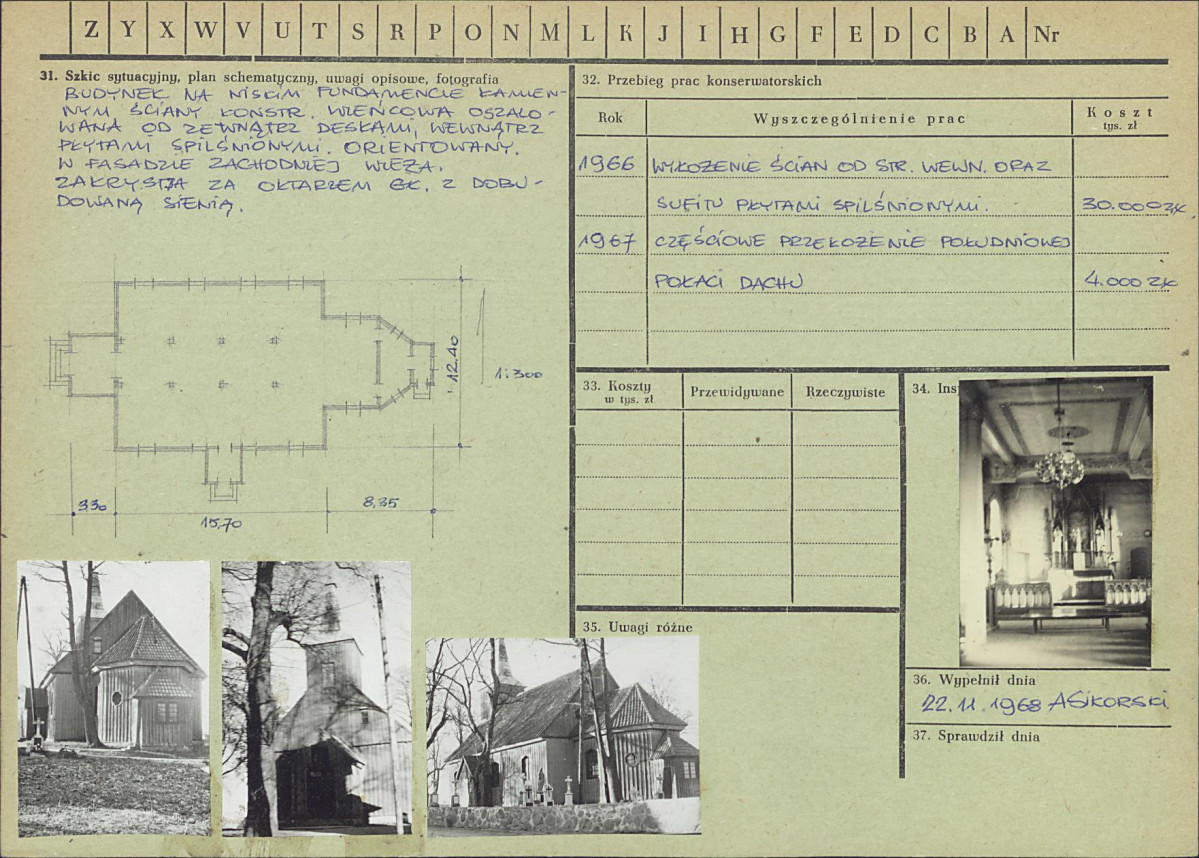 Z Y X W V U T S R P O N M L K J I H G F E D C B A Nr
31. Szkic sytuacyjny, plan schematyczny, uwagi opisowe, fotografia
BUDYNEK NA NISKIM FUNDAMENCIE KAMIEN-
NYM ŚCIANY KONSTR. WIEŃCOWA OSZALO-
WANA OD ZEWNĄTRZ DESKAMI, WEWNĄTRZ
PŁYTAMI SPILŚNIONYMI. ORIENTOWANY.
W FASADZIE ZACHODNIEJ WIEŻA.
ZAKRYSTJA ZA OŁTARZEM GŁ. Z DOBU-
DOWANĄ SIENIĄ.
12.40
1:300
3.30
15,70
8,35
32. Przebieg prac konserwatorskich
Rok
Wyszczególnienie prac
Koszt
tys. zł
1966 WYŁOŻENIE ŚCIAN OD STR. WEWN. ORAZ
SUFITU PŁYTAMI SPILŚNIONYMI. 30.000 zł.
1967 CZĘŚCIOWE PRZEŁOŻENIE POŁUDNIOWEJ
POŁACI DACHU 4.000 zł
33. Koszty
w tys. zł
Przewidywane
Rzeczywiste
34. Ins
35. Uwagi różne
36. Wypełnił dnia
22.11.1968 A SIKORSKI
37. Sprawdził dnia